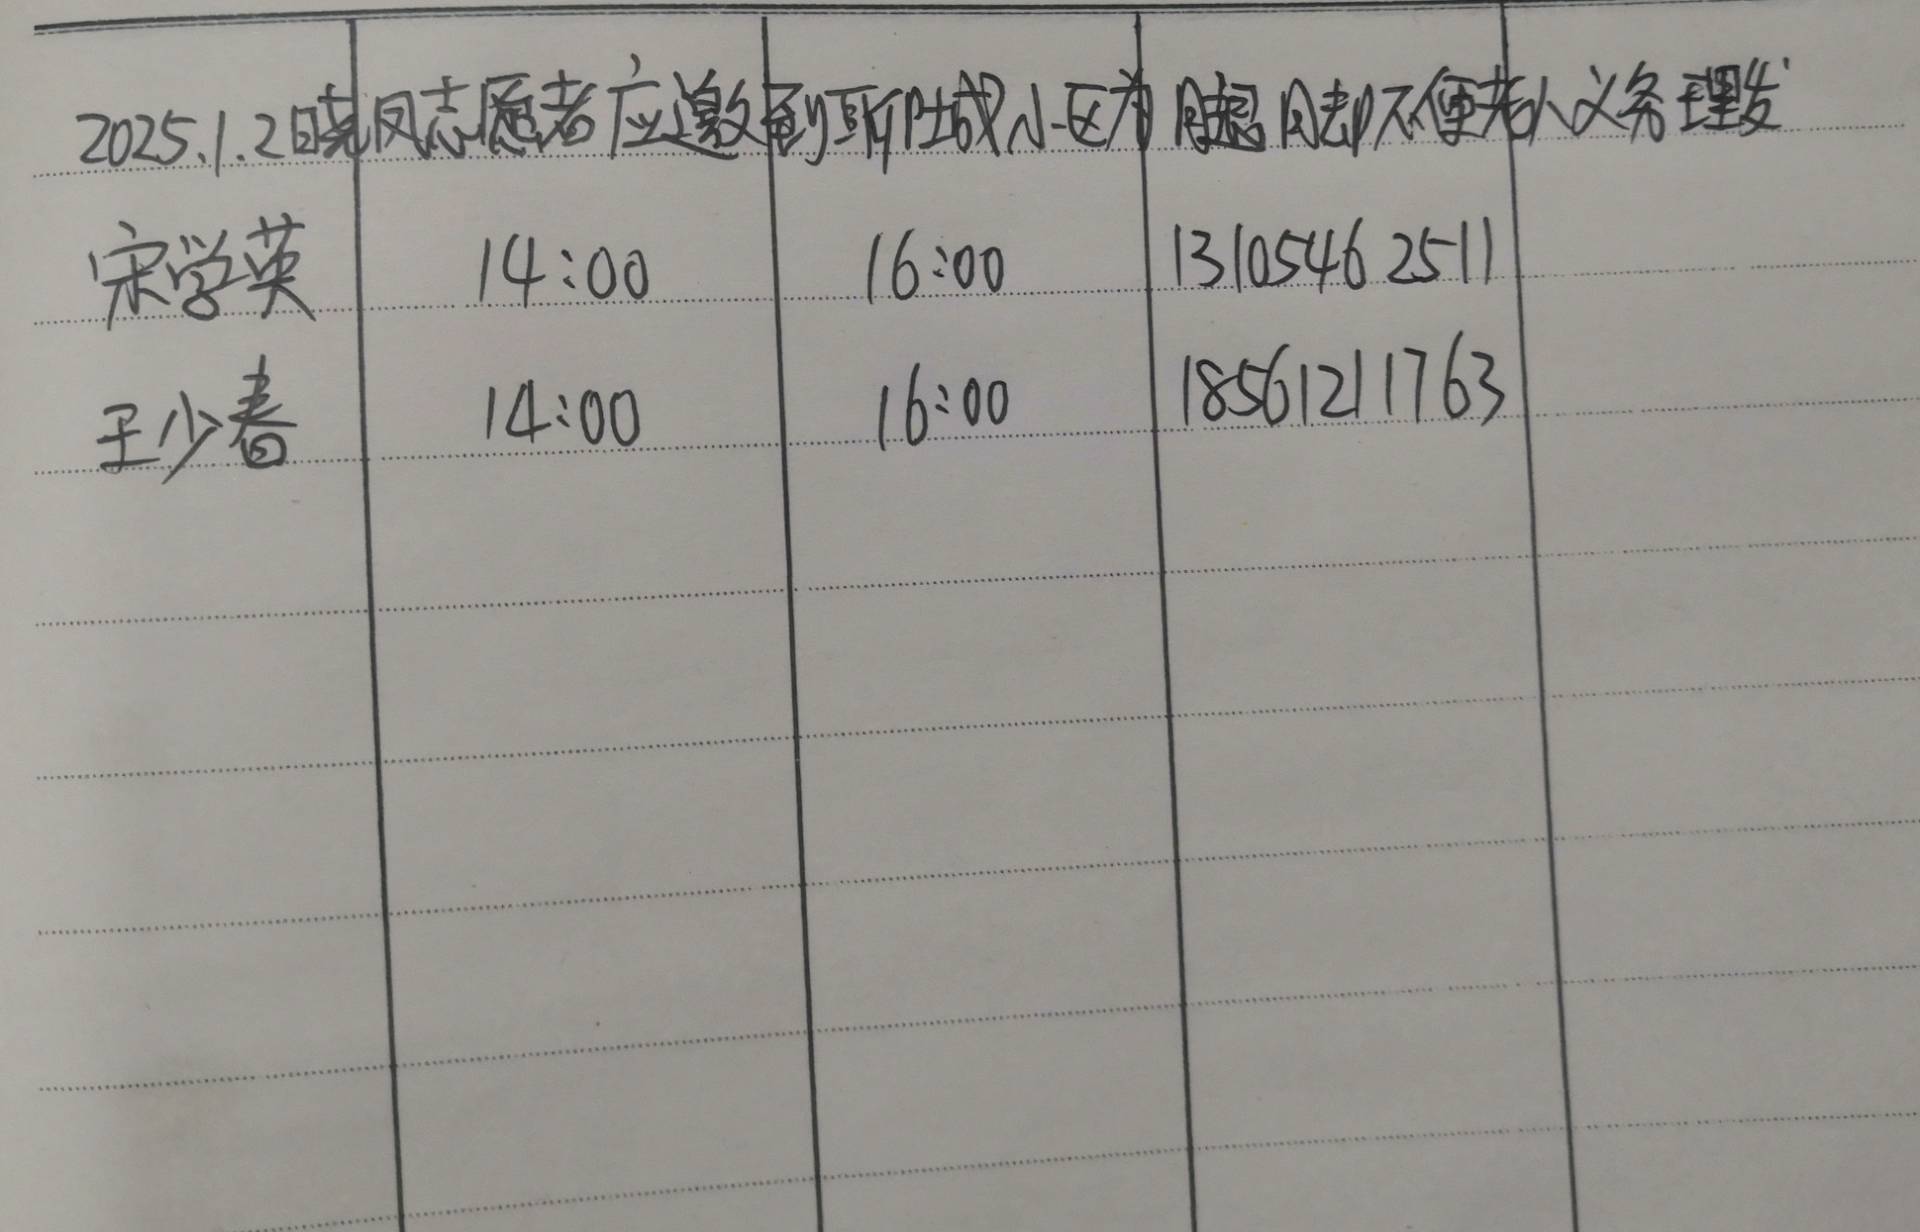 2025.1.2日晓风志愿者应邀到耶仕城小区为腿脚不便老人义务理发
宋学英 14:00 16:00 13105462511
王少春 14:00 16:00 18561211763